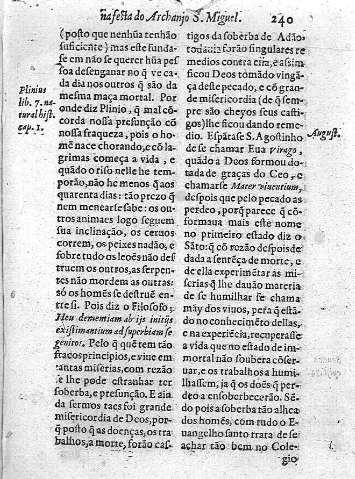 na festa do Archanjo S. Miguel. 240
(posto que nenhũa tenhão
suficiente) mas este funda-
se em não se querer hũa pes
soa desenganar no q̃ ve ca-
da dia nos outros q̃ são da
mesma maça mortal. Por
onde diz Plinio, q̃ mal cõ
corda nossa presunção cõ
nossa fraqueza, pois o ho-
mẽ nace chorando, e cõ la-
grimas começa a vida, e
quãdo o riso nelle he tem-
porão, não he menos q̃ aos
quarenta dias: tão prezo q̃
nem menearse sabe: os ou-
tros animaes logo seguem
sua inclinação, os ceruos
correm, os peixes nadão, e
sobre tudo os leões não des
truem os outros, as serpen-
tes não mordem as outras:
só os homẽs se destruẽ en-
tre si. Pois diz o Filosofo:
Heu dementiam ab ijs initijs
existimantium ad superbiam se
genitos. Pelo q̃ quẽ tem tão
fracos principios, e viue em
tantas miserias, com rezão
se lhe pode estranhar ter
soberba, e presunção. E aida
da sermos taes foi grande
misericordia de Deos, por-
q̃ posto q̃ as doenças, os tra
balhos, a morte, forão cas-
Plinius
lib. 7. na-
tural hist.
cap. 1.
tigos da soberba de Adão
todauia forão singulares re
medios contra ella, e assim
ficou Deos tomãdo vingã-
ça deste pecado, e cõ gran-
de misericordia (de q̃ sem-
pre são cheyos seus casti-
gos) lhe ficou dando reme-
dio. Espãtase S. Agostinho
de se chamar Eua virago,
quãdo a Deos formou do-
tada de graças do Ceo, e
chamarse Mater viuentium,
despois que pelo pecado as
perdeo, porq̃ parece q̃ cõ-
formaua mais este nome
no primeiro estado diz o
Sãto: q̃ cõ rezão despois de
dada a sentẽça de morte, e
de ella exprimẽtar as mi-
serias q̃ lhe dauão materia
de se humilhar se chama
mãy dos viuos, pera q̃ estã-
do no conhecimẽto dellas,
e na experiẽcia, recuperasse
a vida que no estado de im-
mortal não soubera cõser-
uar, e os trabalhos a humi-
lhassem, ja q̃ os doẽs q̃ per-
deo a ensoberbecerão. Sẽ-
do pois a soberba tão alhea
dos homẽs, com tudo o E-
uangelho santo trata de se
achar tão bem no Cole-
gio
August.